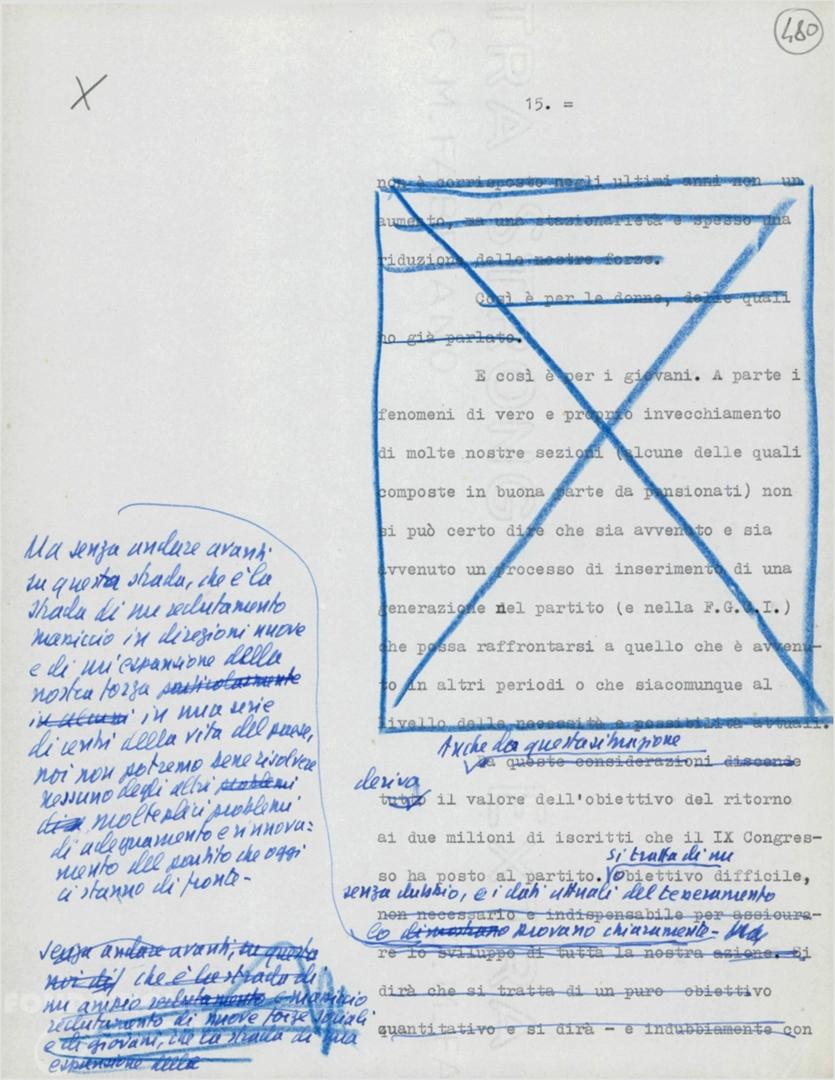 480
X
15. =
non è corrisposto negli ultimi anni non un
aumento, ma una stazionarietà e spesso una
riduzione delle nostre forze.
Così è per le donne, delle quali
ho già parlato.
E così è per i giovani. A parte i
fenomeni di vero e proprio invecchiamento
di molte nostre sezioni (alcune delle quali
composte in buona parte da pensionati) non
si può certo dire che sia avvenuto e sia
avvenuto un processo di inserimento di una
generazione nel partito (e nella F.G.C.I.)
che possa raffrontarsi a quello che è avvenu-
to in altri periodi o che siacomunque al
livello delle necessità e possibilità attuali.
Anche da questa situazione
Da queste considerazioni discende
deriva
tutto il valore dell'obiettivo del ritorno
ai due milioni di iscritti che il IX Congres-
si tratta di un
so ha posto al partito. Obiettivo difficile,
senza dubbio, e i dati attuali del tesseramento
non necessario e indispensabile per assicura-
lo dimostrano provano chiaramente - Ma
re lo sviluppo di tutta la nostra azione. Si
dirà che si tratta di un puro obiettivo
quantitativo e si dirà - e indubbiamente con
Ma senza andare avanti
su questa strada, che è la
strada di un reclutamento
massiccio in direzioni nuove
e di un'espansione della
nostra forza particolarmente
in alcuni in una serie
di centri della vita del paese,
noi non potremo bene risolvere
nessuno degli altri problemi
molteplici problemi
di adeguamento e rinnova:
mento del partito che oggi
ci stanno di fronte -
senza andare avanti, su questa
che è la strada di
un ampio reclutamento e massiccio
reclutamento di nuove forze sociali
e di giovani, che la strada di una
espansione della